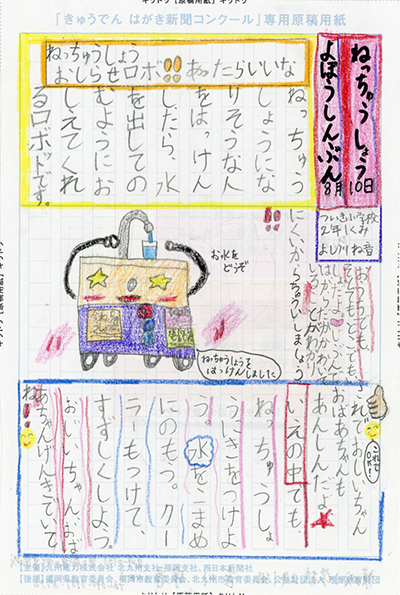 「きゅうでん はがき新聞コンクール」専用原稿用紙
ねっちゅうしょう
よぼうしんぶん
8月10日
ついき小学校
2年1くみ
よし川ね音
ねっちゅうしょう
おしらせロボ!!あったらいいな
ねっちゅう
しょうにな
りそうな人
をはっけん
したら、水
を出しての
むようにお
しえてくれ
るロボットです。
にくいからちゅういしましょう
お水を
どうぞ
ねっちゅうしょうを
はっけんしました
これで
れでおじいちゃん
おばあちゃんも
あんしんだよ
いえの中でも
ねっちゅうしょ
ういきをつけよ
う。水をこまめ
にのもう。クー
ラーもつけて、
すずしくしよう
おじいちゃん、おば
あちゃんげんきでいて
ね!
【主催】九州電力株式会社 北九州支社・福岡支社、西日本新聞社
【後援】福岡県教育委員会、福岡市教育委員会、北九州市教育委員会、公益財団法人 理想教育財団